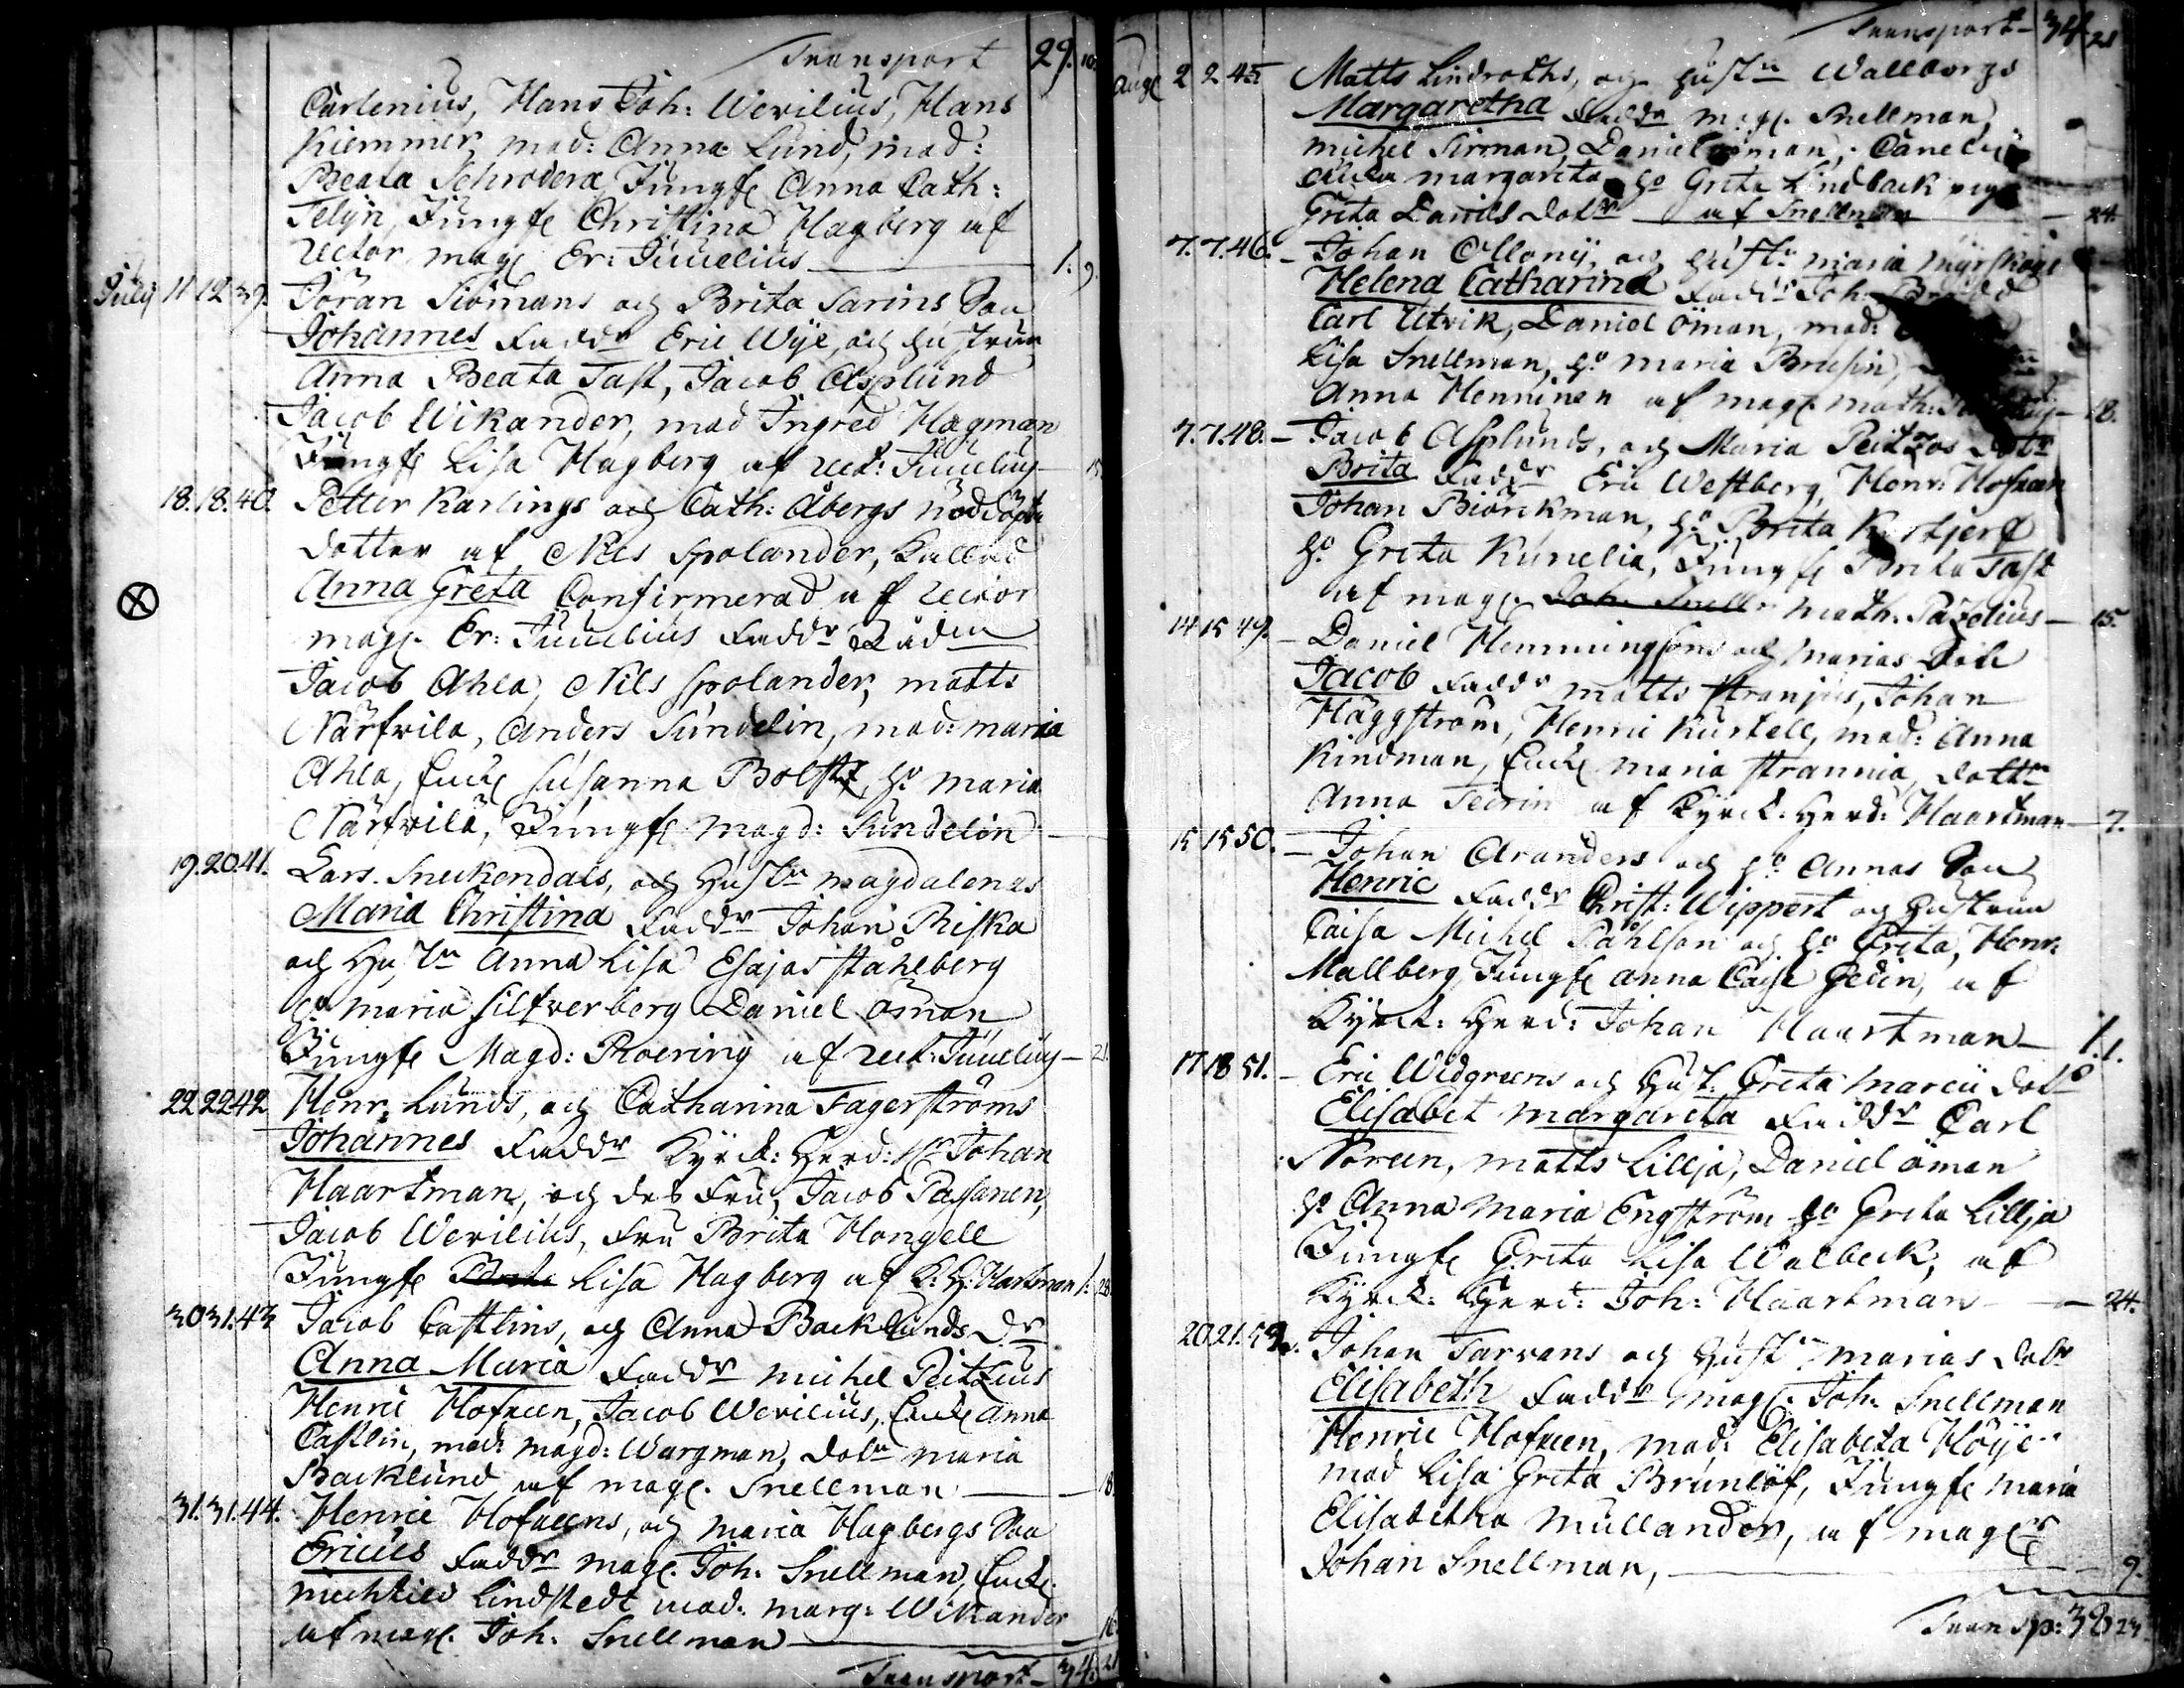 Transport 29. 10.
Carlenius, Hans Joh: Werilius, Hans
Kiemmer, mad: Anna Lund, mad:
Beata Schrodera Jungfr Anna Cath:
Telijn, Jungfr Christina Hagberg af
rector mag Er: Juuelius 1. 9.
July 11 12 39. Jöran Siömans och Brita Sarins Son
Johannes Faddr Eric Wije, och hustrun
Anna Beata Tast, Jacob Asplund
Jacob Wikander, mad Ingred Hagman
Jungfr Lisa Hagberg af rect: Juuelius 15.
18. 18. 40. Petter Karlings och Cath: Åbergs nöddöpta
dotter af Nils Spolander, Kallad
Anna Greta Confirmerad af rector
mag. Er: Juuelius Faddr Rådm
Jacob Ahla, Nils Spolander, matts
Närfvila, Anders Sundelin, mad: maria
Ahla, Enck Susanna Bolstr, ho maria
Närfvila, Jungfr magd: Sundelin
19. 20. 41. Lars. Sneckendals, och Hustru magdalenas
Maria Christina Faddr Johan Riska
och Hustru Anna Lisa Esajas ståhlberg
ho maria silfverberg Daniel öman
Jungfr Magd: Roering af rect: Juuelius 21.
22 22 42 Henr. Lunds, och Catharina Fagerströms
Johannes Faddr Kyrck: Herd: Hr Johan
Haartman, och des Fru, Jacob Passanen,
Jacob Werilius, Fru Brita Hongell
Jungfr Lisa Hagberg af K. H. Hartman 1. 28.
30 31. 43 Jacob Castlins, och Anna Backlunds Dr
Anna Maria Faddr michel Peitzius
Henric Hofreen, Jacob Werilius, Enck Anna
Castlin, mad: magd: Wargman, dotr maria
Backlund af mag. Snellman 18.
31. 31. 44. Henric Hofreens, och maria Hagbergs Son
Ericus Faddr mag. Joh. Snellman, Enck
Lindstedt mad: marg: Wikander
af mag. Joh. Snellman 16.
Transport 34. 21
Transport 34 21
Aug 2 2 45 Matts Lindroths, och Hustru Wallborgs
Margaretha Faddr mag. Snellman,
michel Sirman, Daniel öman,
margareta ho Greta Lindback
Greta Daniels dotr af Snellman 24.
7. 7. 46. Johan Ollonij, och Hustr maria myrskogs
Helena Catharina Faddr Joh:
Carl Utvik, Daniel öman, mad:
Lisa Snellman, ho maria Brusin,
Anna Henninen af mag. math: 18.
7. 7. 48. Jacob Asplunds, och Maria Peitzos dotr
Brita Faddr Eric Westberg, Henr: Hofreen
Johan Biörckman, ho Brita
ho Greta Kunelia, Jungfr Brita Tast
af mag. Joh. Snellm math. Pazelius 15.
14 15 49. Daniel Hemmingsons och marias Son
Jacob Faddr matts stranjus, Johan
Häggström, Henric Kurtell, mad: Anna
Kindman, Enck maria strannia, dottr
Anna Teirin af Kyrck. Herd: Haartman 7.
15 15 50. Johan Aranders och ho Annas Son
Henric Faddr Christ: Wippert och Hustrun
Caisa Michel Påhlson och ho Greta, Henr:
Mallberg, Jungfr anna Caisa Hedin, af
Kyrck: Herd: Johan Haartman 1. 1.
17 18 51. Eric Widgreens och Hust: Greta Marcii dotr
Elisabet margareta Faddr Carl
Noreen, matts Lillja, Daniel öman
ho Anna Maria Engström ho Greta Lillja
Jungfr Greta Lisa Walbeck, af
Kyrck: Herd: Joh: Haartman 24.
20. 21. 52. Johan Tarvans och Hustr marias dotr
Elisabeth Faddr mag. Joh. Snellman
Henric Hofreen, mad: Elisabeta Höije
mad Lisa Greta Brunlöf, Jungfr maria
Elisabetha mullander, af mag
Johan Snellman, 9.
Transp: 38 29